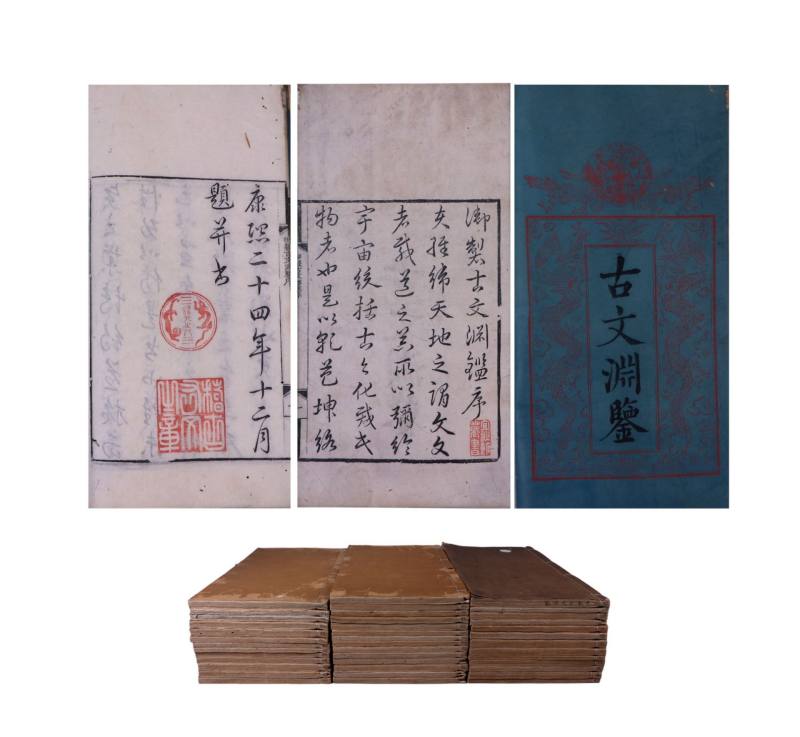 古文淵鑒
御製古文淵鑑序
夫經緯天地之謂文文
者載道之器所以彌綸
宇宙統括古今化裁民
物者也是以乾苞坤絡
康熙二十四年十二月
題并書
稽古右文之章